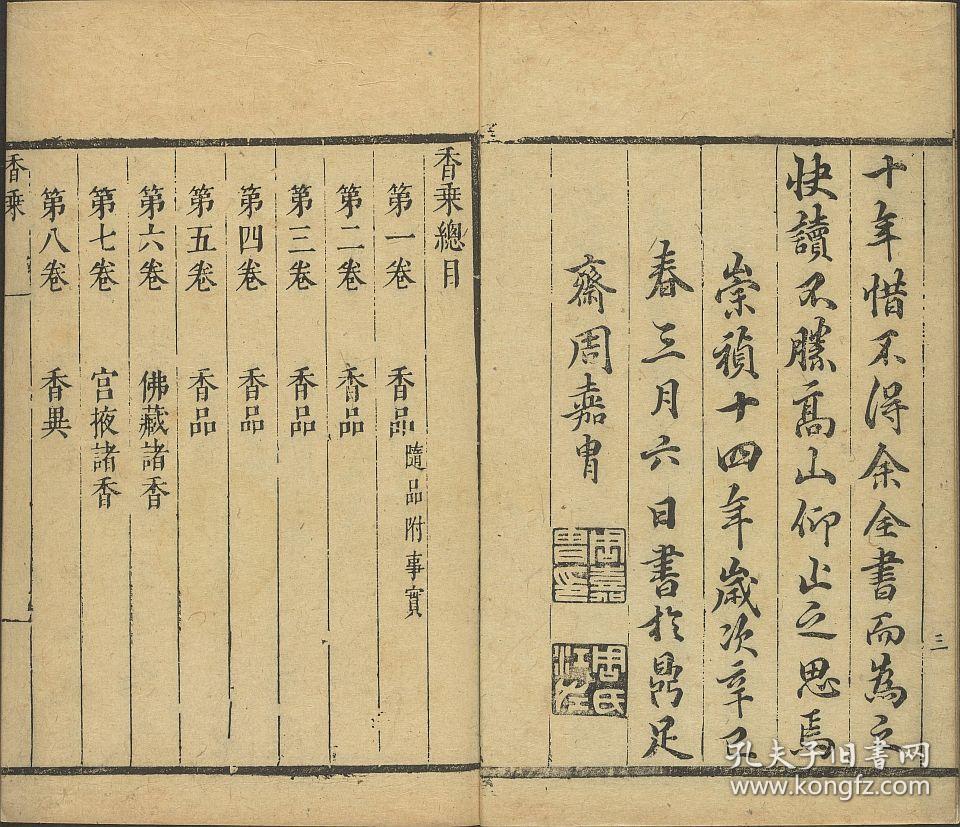 十年惜不得余全書而為之
快讀不勝高山仰止之思焉
崇禎十四年歲次辛巳
春三月六日書於鼎足
齋周嘉胄
周嘉胄印
周氏江左
三
香乘總目
第一卷 香品隨品附事實
第二卷 香品
第三卷 香品
第四卷 香品
第五卷 香品
第六卷 佛藏諸香
第七卷 宮掖諸香
第八卷 香異
香乘
孔夫子旧书网
www.kongfz.com